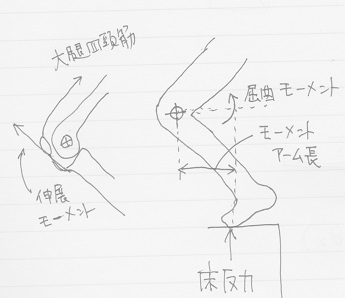 大腿四頭筋
伸展
モーメント
屈曲モーメント
モーメント
アーム長
床反力